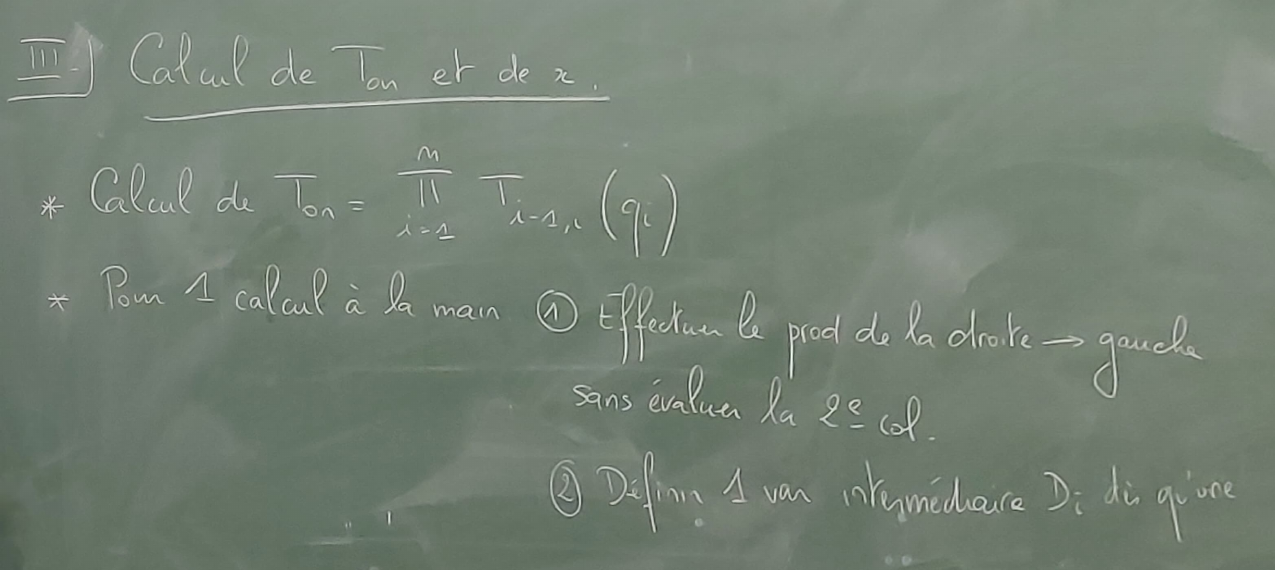 III) Calcul de Ton et de x.
* Calcul de Ton = n Π i=1 Ti-1,i (qi)
* Pour 1 calcul à la main ① Effectuer le prod de la droite → gauche
sans évaluer la 2e col.
② Définir 1 var intermédiaire Di dès qu'une